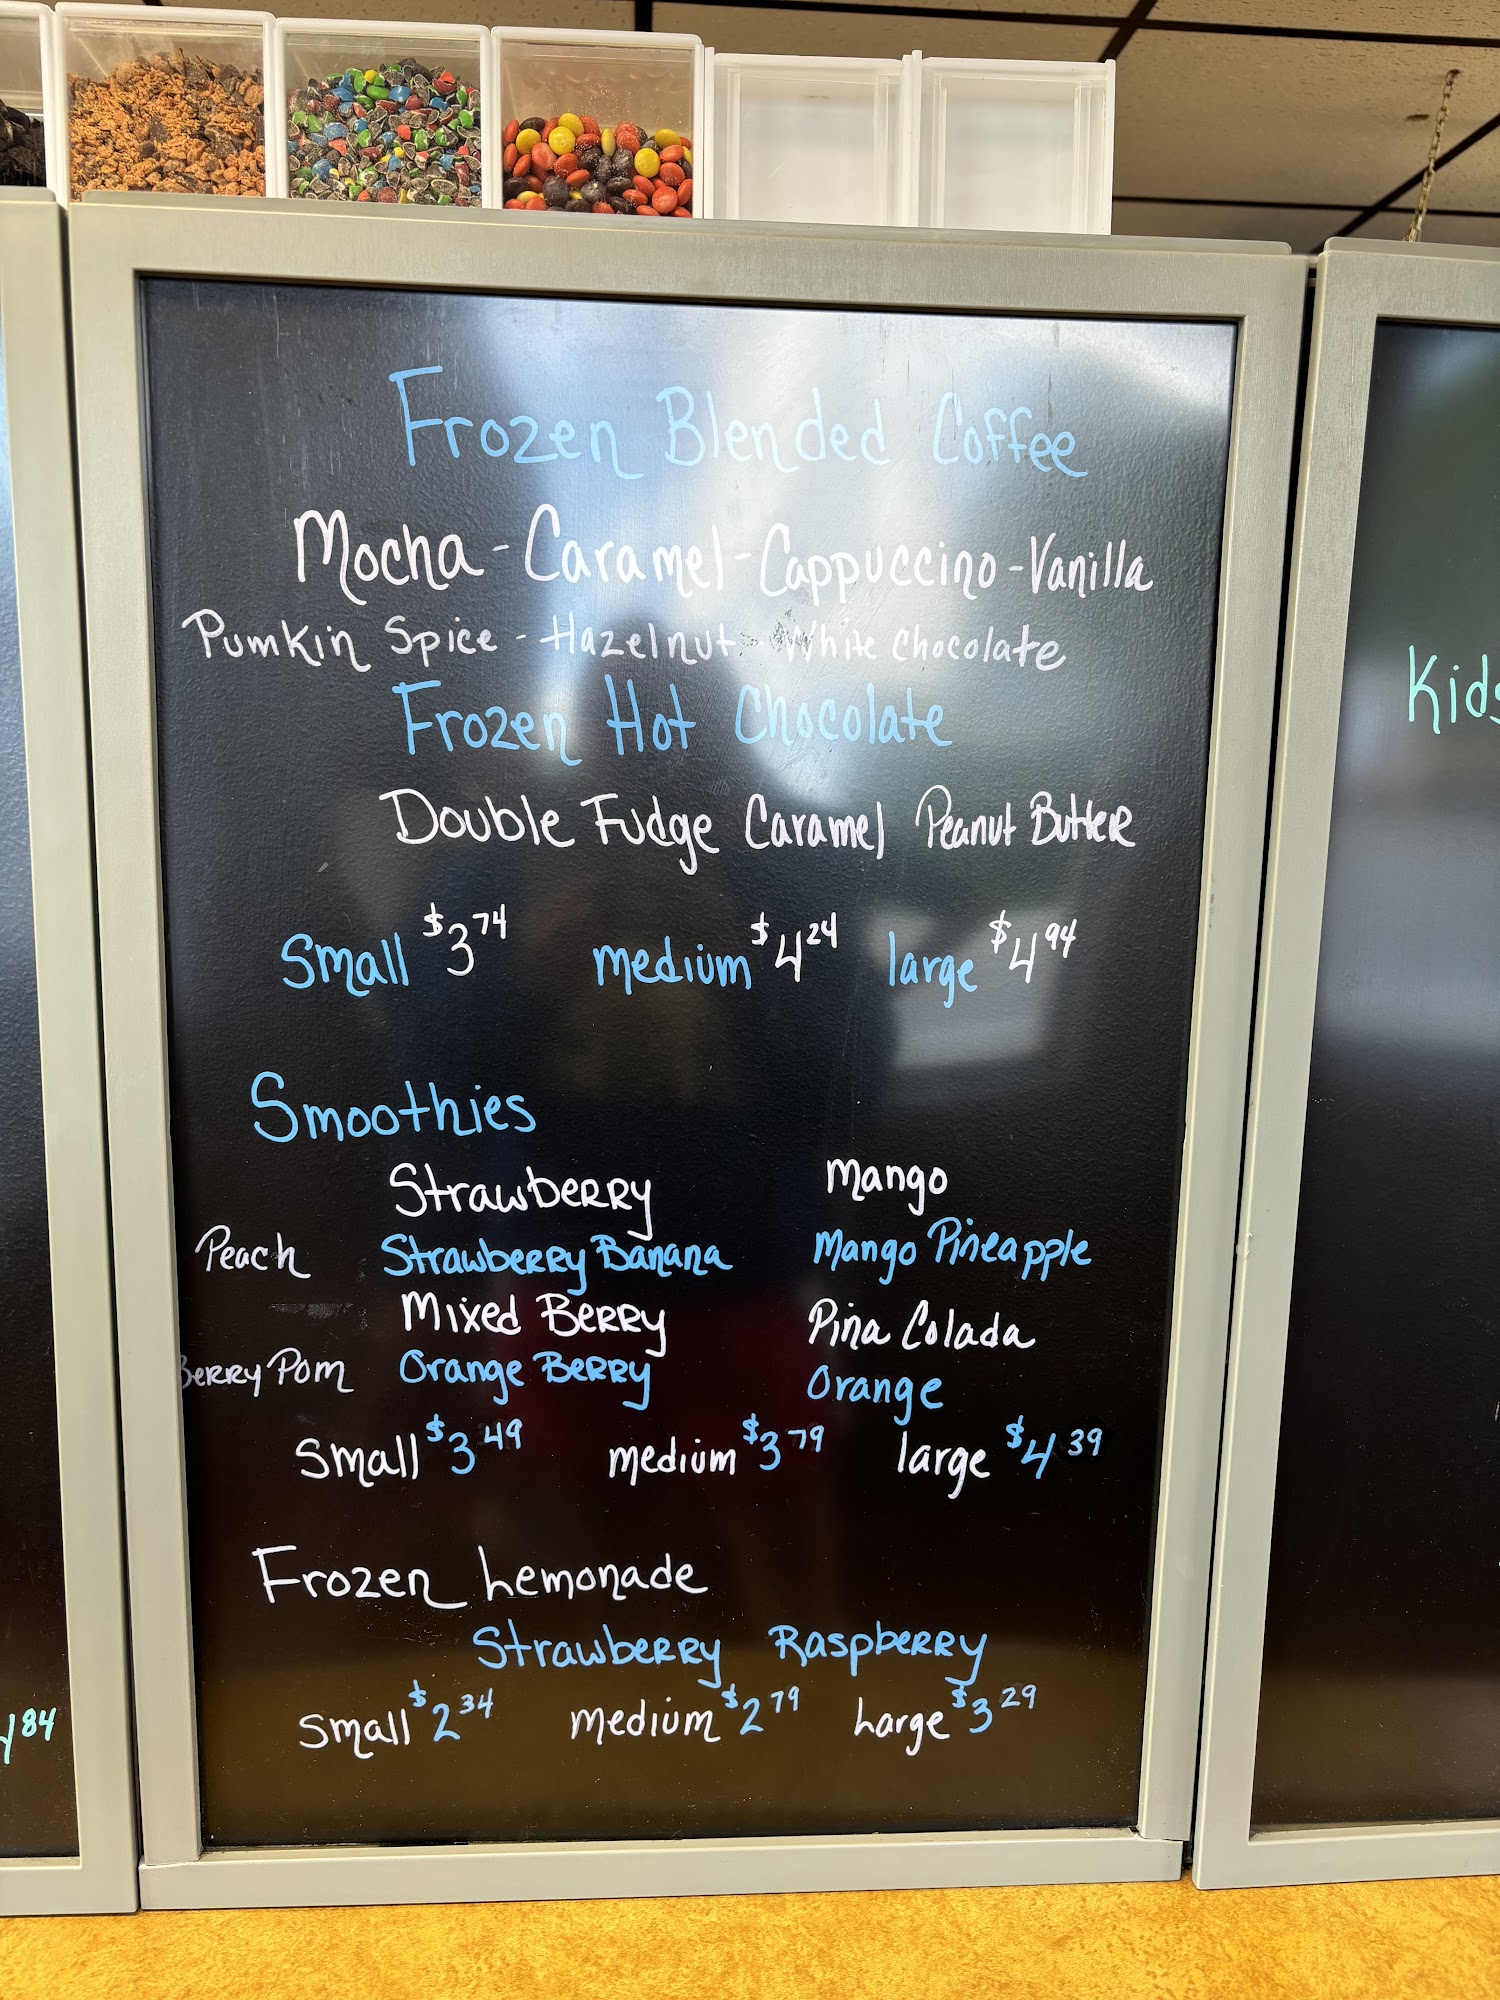 Frozen Blended Coffee
Mocha - Caramel - Cappuccino - Vanilla
Pumkin Spice - Hazelnut - White Chocolate
Frozen Hot Chocolate
Double Fudge Caramel Peanut Butter
Small $3 74 medium $4 24 large $4 94
Smoothies
Strawberry Mango
Peach Strawberry Banana Mango Pineapple
Mixed Berry Pina Colada
Berry Pom Orange Berry Orange
Small $3 49 medium $3 79 large $4 39
Frozen Lemonade
Strawberry Raspberry
Small $2 34 medium $2 79 Large $3 29
Kids
84